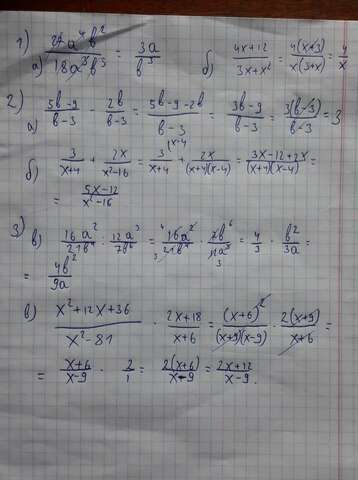 1) а) 27a⁴b² / 18a³b⁵ = 3a / b³   б) (4x+12) / (3x+x²) = 4(x+3) / x(3+x) = 4/x
2) а) (5b-9)/(b-3) - 2b/(b-3) = (5b-9-2b)/(b-3) = (3b-9)/(b-3) = 3(b-3)/(b-3) = 3
б) 3/(x+4) + 2x/(x²-16) = 3/(x+4) (x-4 + 2x/((x+4)(x-4)) = (3x-12+2x)/((x+4)(x-4)) =
= (5x-12)/(x²-16)
3) в) 16a²/21b⁴ : 12a³/7b⁶ = 16a²/21b⁴ · 7b⁶/12a³ = 4/3 · b²/3a =
= 4b²/9a
в) (x²+12x+36)/(x²-81) · (2x+18)/(x+6) = (x+6)²/((x+9)(x-9)) · 2(x+9)/(x+6) =
= (x+6)/(x-9) · 2/1 = 2(x+6)/(x-9) = (2x+12)/(x-9).